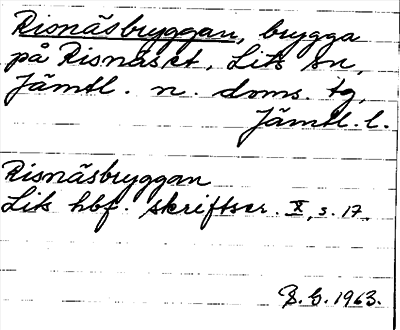 Risnäsbryggan, brygga
på Risnäset, Lits sn,
Jämtl. n. doms. tg,
Jämtl. l.
Risnäsbryggan
Lits hbf. skriftser. X, s. 17.
B. G. 1963.